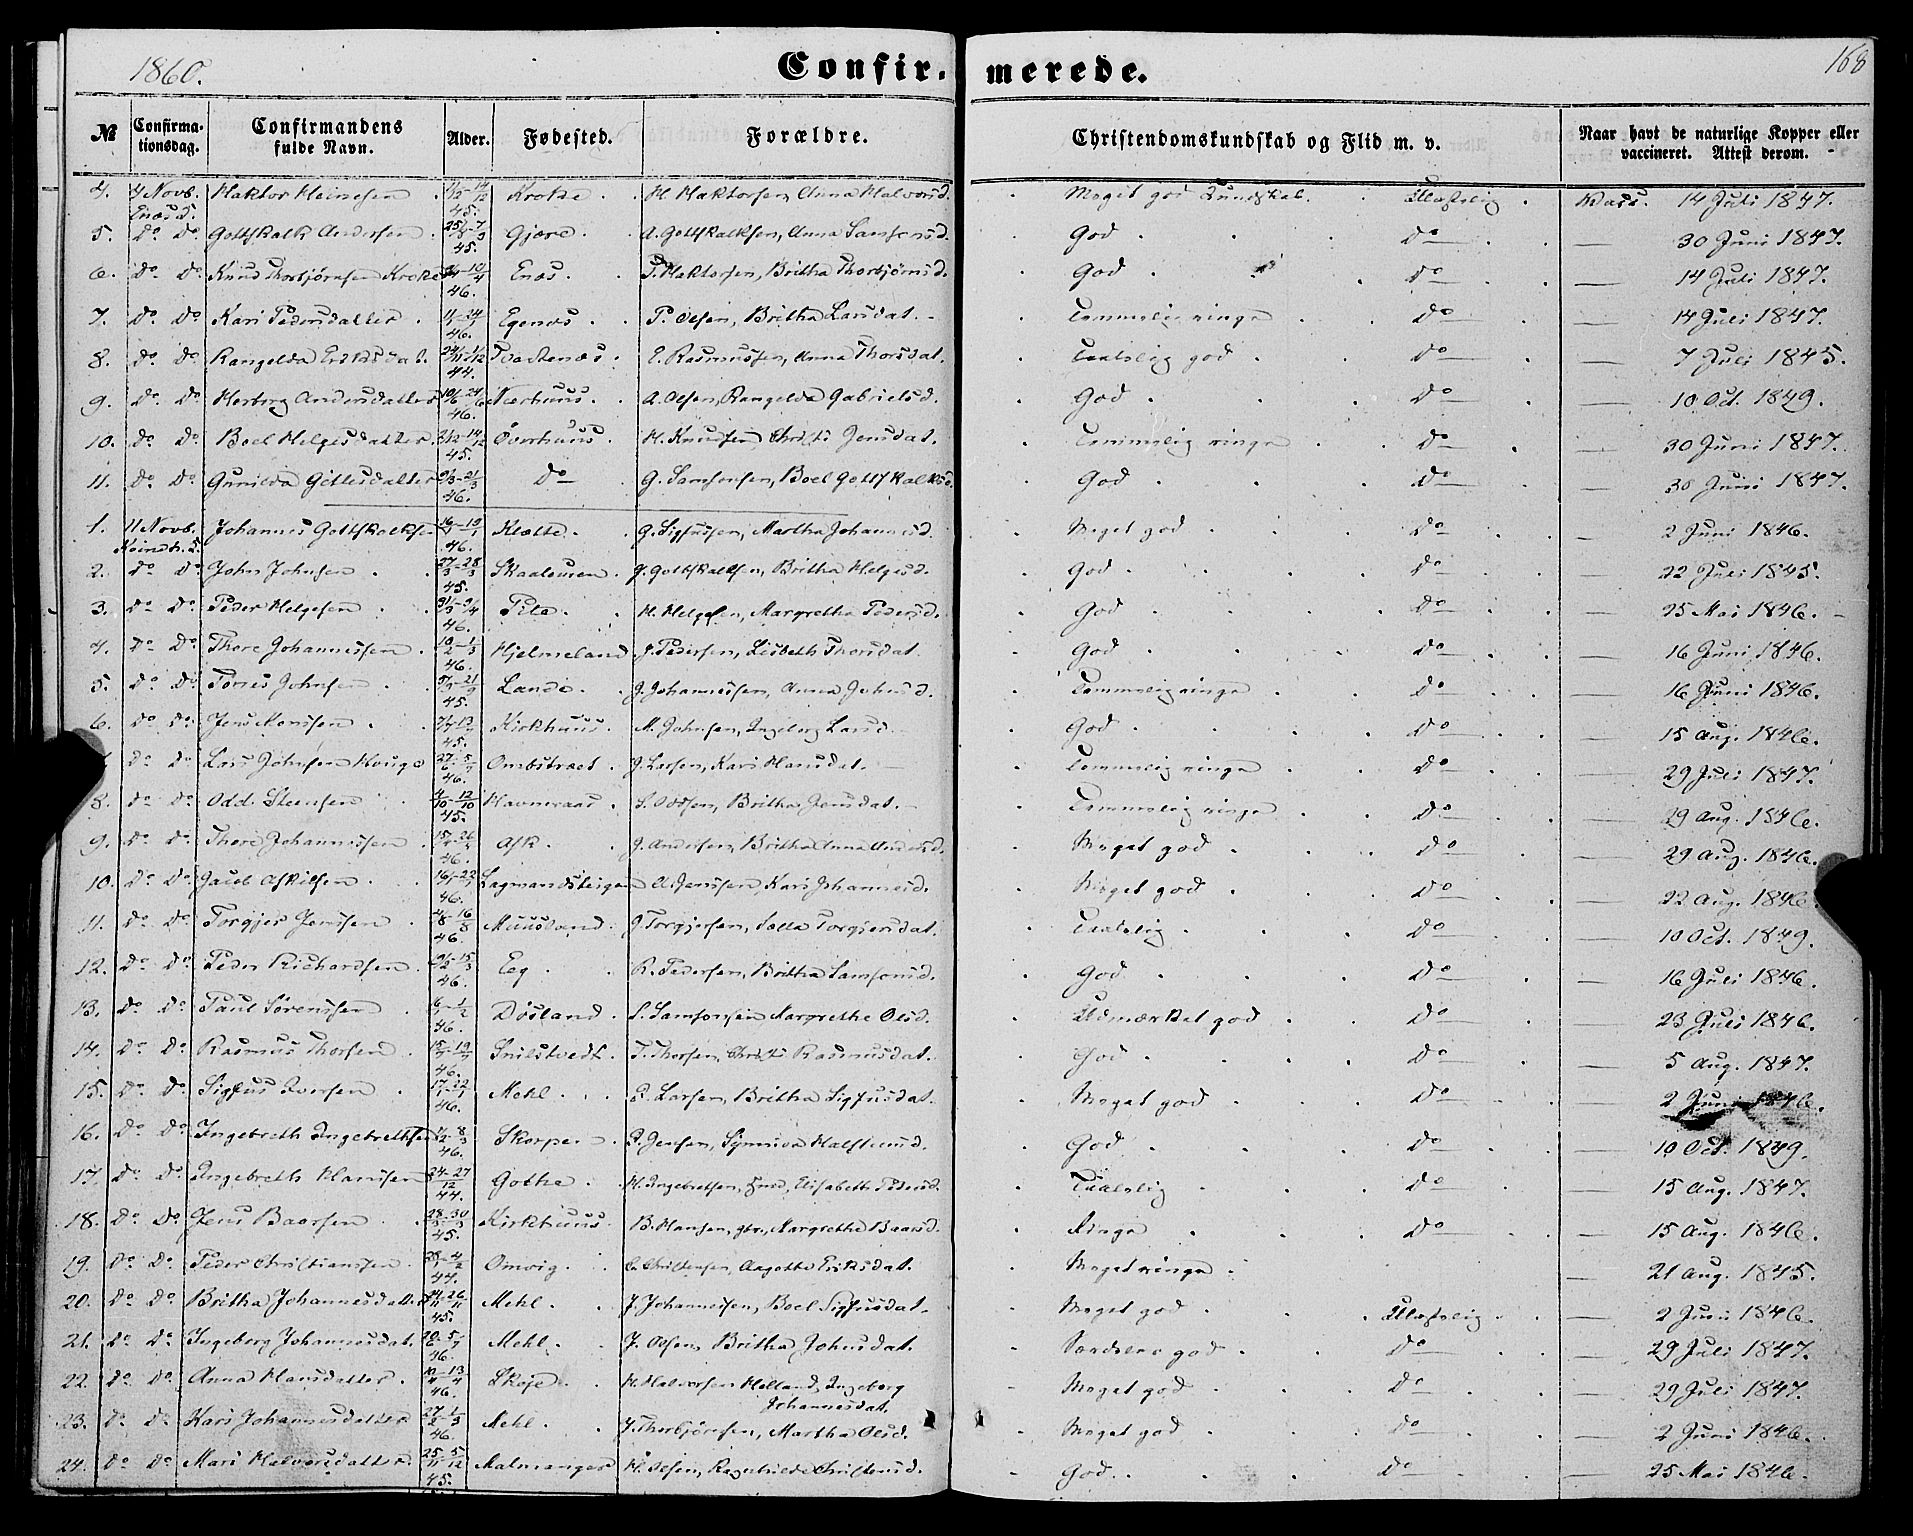 1860.
Confir- merede.
168
№
Confirma-
tionsdag.
Confirmandens
fulde Navn.
Alder.
Fødested.
Forældre.
Christendomskundskab og Flid m. v.
Naar havt de naturlige Kopper eller
vaccineret. Attest derom.
4. 4 Novb. Enæs S. Haktor Heinesen 45. Kroke H. Haktorsen, Anna Halvorsd. Meget god Kundskab. Ulastelig Vacc. 14 Juli 1847.
5. Do Do Gottskalk Andersen 45. Gjære A. Gottskalksen, Anna Samsonsd. God Do 30 Juni 1847.
6. Do Do Knud Thorbjørnsen Kroke 46. Enæs T. Haktorsen, Britha Thorbjørnsd. God Do 14 Juli 1847.
7. Do Do Kari Pedersdatter 46. Egenæs P. Olsen, Britha Larsdat. Temmelig ringe Do 14 Juli 1847.
8. Do Do Rangelda Eriksdat. 44. Tvedtenæs E. Rasmussen, Anna Thorsdat. Taalelig god Do 7 Juli 1845.
9. Do Do Herborg Andersdatter 46. Nærhuus A. Olsen, Rangelda Gabrielsd. God Do 10 Oct. 1849.
10. Do Do Boel Helgesdatter 45. Øverhuus H. Knudsen, Christi Jensdat. Temmelig ringe Do 30 Juni 1847.
11. Do Do Gunilda Gittesdatter 46. Do G. Samsonsen, Boel Gottskalksd. God Do 30 Juni 1847.
1. 11 Novb. Kvindh. S. Johannes Gottskalksen 46. Klette G. Sigfussen, Martha Johannesd. Meget god Do 2 Juni 1846.
2. Do Do John Johnsen 27/3-28/3 45. Skaaleuren J. Gottskalksen, Britha Helgesd. God Do 22 Juli 1845.
3. Do Do Peder Helgesen 46. Tite H. Helgesen, Margretha Pedersd. God Do 25 Mai 1846.
4. Do Do Thore Johannessen 10/2-1/3 46. Hjelmeland J. Pedersen, Lisbeth Thorsdat. God Do 16 Juni 1846.
5. Do Do Torres Johnsen 45. Lande J. Johannessen, Anna Johnsd. Temmelig ringe Do 16 Juni 1846.
6. Do Do Jens Monssen 45. Kirkhuus M. Johnsen, Ingeborg Larsd. God Do 15 Aug. 1846.
Do Do Lars Johnsen Houge 46. Ombstræet J. Larsen, Kari Hansdat. Temmelig ringe Do 29 Juli 1847.
8. Do Do Odd Steensen 4/10-12/10 45. Havneraas S. Oddsen, Britha Jensdat. Temmelig ringe Do 29 Aug. 1846.
9. Do Do Thore Johannessen 46. Ask J. Andersen, Britha Anna Andersd. Meget god Do 29 Aug. 1846.
10. Do Do Jacob Askildsen 46. Lagmandsteigen A. Jenssen, Kari Johannesd. Meget god Do 22 Aug. 1846.
11. Do Do Torgjer Jenssen 46. Muusland J. Torgjersen, Torgjersdat. Taalelig Do 10 Oct. 1849.
12. Do Do Peder Richardsen 46. Eeg R. Pedersen, Britha Samsonsd. God Do 16 Juli 1846.
13. Do Do Paul Sørenssen 46. Døsland S. Samsonsen, Margrethe Olsd. Udmærket god Do 23 Juli 1846.
14. Do Do Rasmus Thorsen 46. Snilstvedt T. Thorsen, Christi Rasmusdat. God Do 5 Aug. 1847.
15. Do Do Sigfus Iversen 17/1-22/1 46. Mehl I. Larsen, Britha Sigfusdat. Meget god Do 2 Juni 1846.
16. Do Do Ingebreth Ingebrethsen 46. Skorpen I. Jensen, Synneva Halstensd. God Do 10 Oct. 1849.
17. Do Do Ingebreth Hanssen 24-27/12 44. Gothe H. Ingebretsen, Elisabeth Pedersd. Taalelig Do 15 Aug. 1847.
18. Do Do Jens Baarsen 28/3-30/3 45. Kirkhuus B. Hansen, Margretha Baarsd. Ringe Do 15 Aug. 1846.
19. Do Do Peder Christianssen 44. Omvig C. Christensen, Aagotte Eriksdat. Meget ringe 21 Aug. 1845.
20. Do Do Britha Johannesdatter 24/11-26/11 45. Mehl J. Johannessen, Boel Sigfusdat. Meget god Ulastelig 2 Juni 1846.
21. Do Do Ingeborg Johannesdat. 46. Mehl J. Olsen, Britha Johnsdat. Særdeles god Do 29 Juli 1847.
22. Do Do Anna Hansdatter 10/4-13/4 46. Skeie H. Halvorsen Helland, Ingeborg Johannesdat. Meget god Do 29 Juli 1847.
23. Do Do Kari Johannesdatter 27/2-1/3 46. Mehl J. Thorbjørnsen, Martha Olsd. Meget god Do 2 Juni 1846.
24. Do Do Mari Halvorsdatter 25/11-5/12 45. Malmanger H. Olsen, Ragnhilde Christensd. God Do 25 Mai 1846.